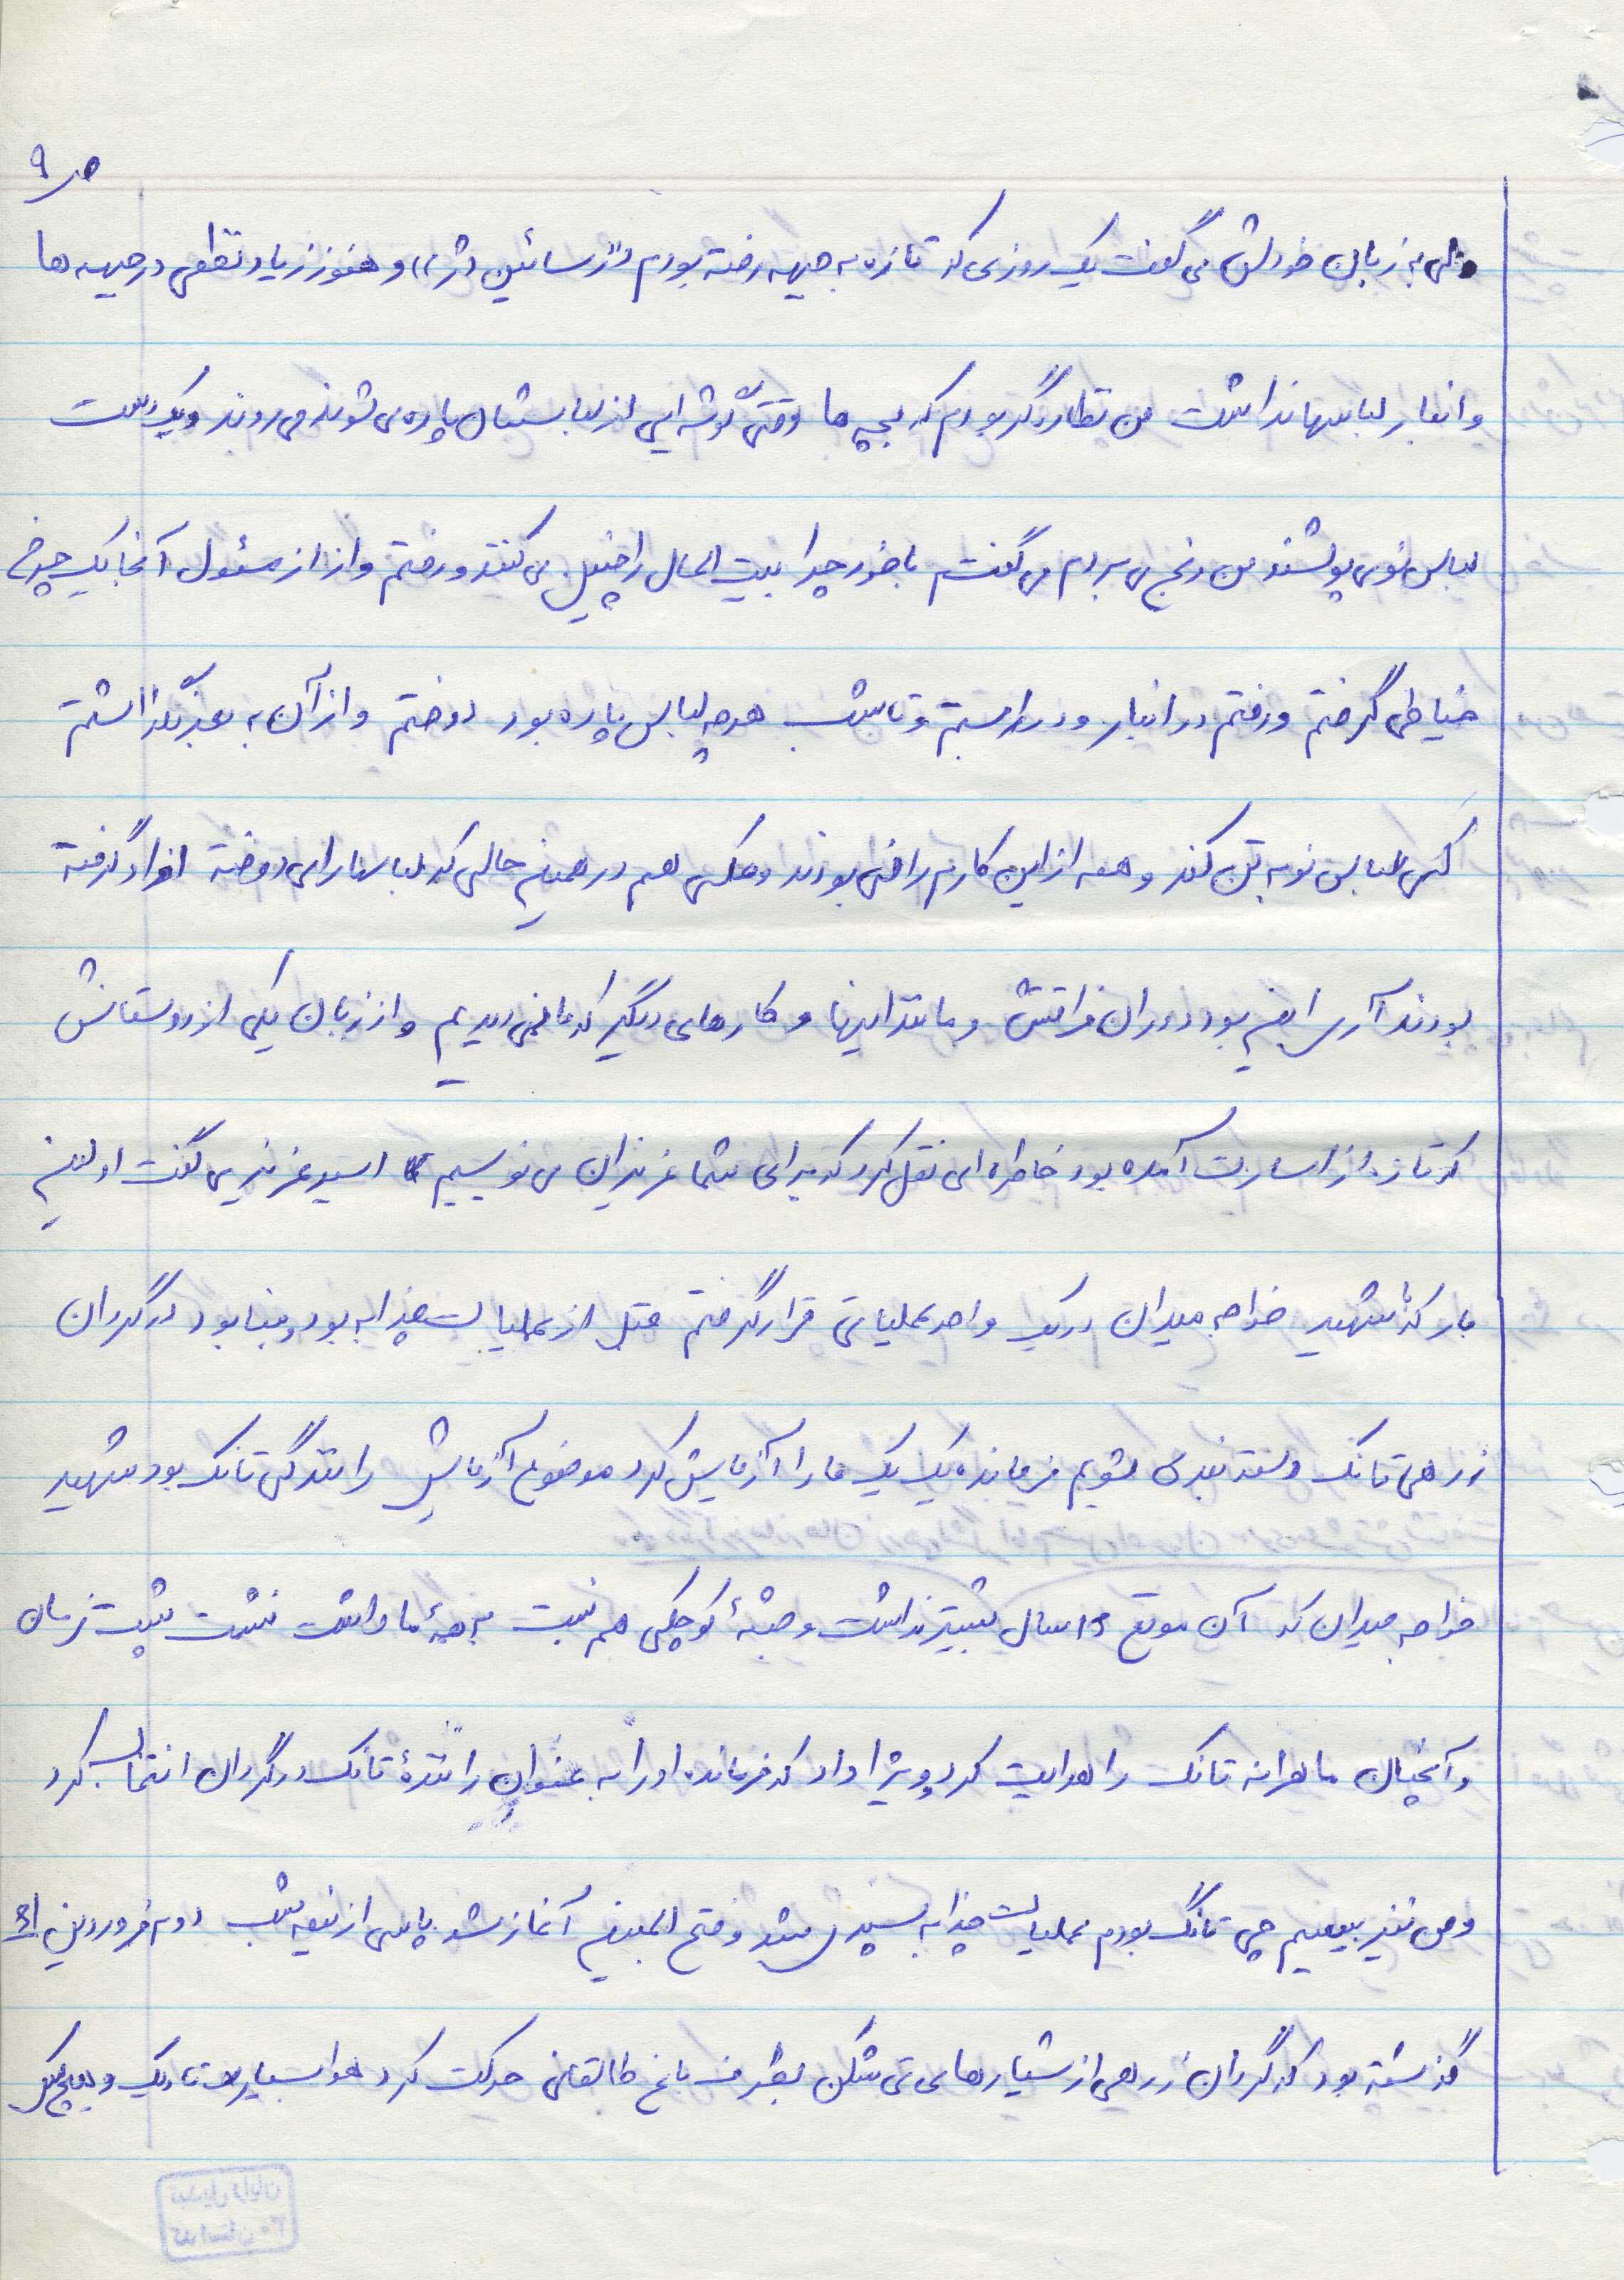 ص۹
ولی به زبان خودش می گفت یک روزی که تازه به جبهه رفته بودم و هنوز زیاد نظمی در جبهه ها
و انبار لباسها نداشت من نظاره گر بودم که بچه ها وقتی گوشه ایی از لباسشان پاره می شوند می روند و یک دست
لباس نوی پوشند من رنج می بردم می گفتم با خود چرا بیت المال را می کنند و رفتم و از از مسئول آنجا یک چرخ
خیاطی گرفتم و رفتم در انبار و در را بستم و تا شب هر چه لباس پاره بود دوختم و از آن به بعد نگذاشتم
کسی لباس نو به تن کند و همه از این کارم راضی بودند و عکس هم در همین حالی که لباسها را می دوخته افراد گرفته
بودند آری این بود دوران فراقتش و مانند اینها و کارهای دیگر که ما نمی دیدیم و از زبان یکی از دوستانش
که تازه از اسارت آمده بود خاطره ای نقل کرد که برای شما عزیزان می نویسیم اسیر عزیز می گفت اولین
بار که با شهید خواجه میدان در یک واحد عملیاتی قرار گرفتم قبل از عملیات چزابه بود و بنا بود در گردان
زرهی تانک دسته بندی بشویم فرمانده یک یک ما را آزمایش کرد موضوع آزمایش رانندگی تانک بود شهید
خواجه میدان که آن موقع ۱۵ سال بیشتر نداشت و جثهٔ کوچکی هم نسبت به همهٔ ما داشت نشست پشت فرمان
و آنچنان ماهرانه تانک را هدایت کرد و ویژ داد که فرمانده او را به عنوان رانندهٔ تانک در گردان انتخاب کرد
و من نیز بیسیم چی تانک بودم عملیات چزابه سپری شد و فتح المبین آغاز شد پاسی از نیمه شب دوم فروردین ۶۱
گذشته بود که گردان زرهی از شیارهای تی شکن بطرف باغ طالقانی حرکت کرد هوا بسیار تاریک و هیچکس